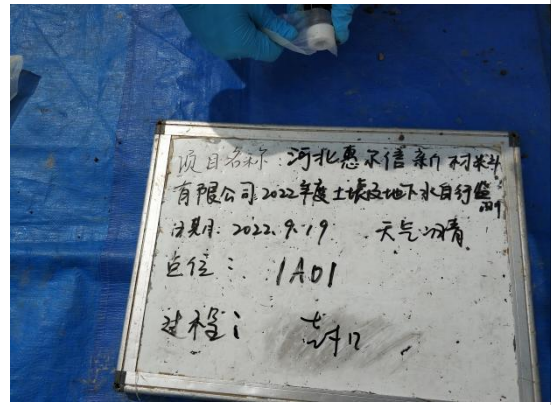 项目名称：河北惠尔信新材料
有限公司2022年度土壤及地下水自行监测
日期：2022.9.19 天气：晴
点位：1A01
过程：封口